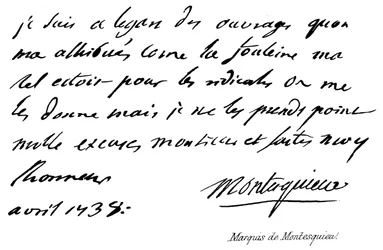 je suis a legard des ouvrages quon
ma attribués come la fontaine ma
tel estoit pour les ridicules on me
les donne mais je ne les prends point
mille excuses monsieur et faites moy
lhonneur
Montesquieu
avril 1738:
Marquis de Montesquieu.